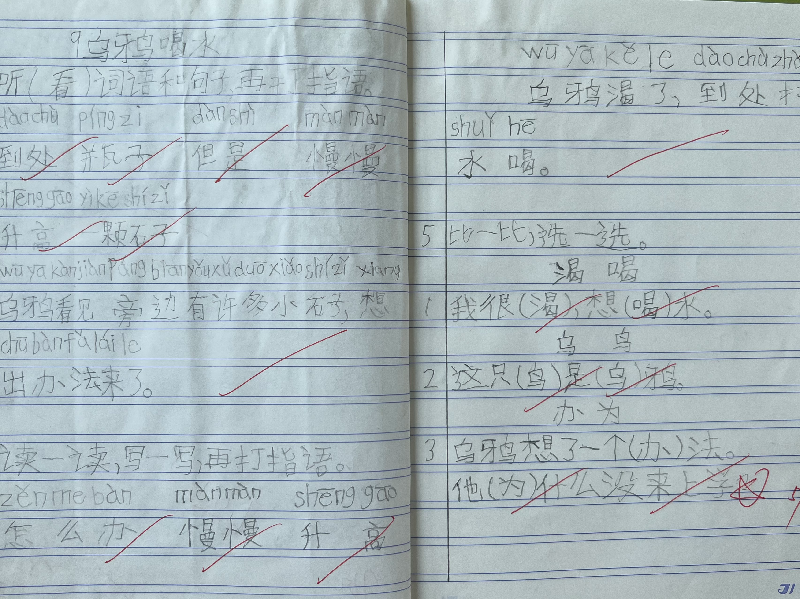 9乌鸦喝水
听(看)词语和句子,再打指语。
dàochù píngzi dànshì mànmàn
到处 瓶子 但是 慢慢
shēnggāo yìkē shízǐ
升高 颗石子
wūyā kànjiàn pángbiān yǒuxǔduō xiǎoshízǐ xiǎng
乌鸦看见旁边有许多小石子,想
chūbànfǎláile
出办法来了。
读一读,写一写,再打指语。
zěnmebàn mànmàn shēnggāo
怎么办 慢慢 升高
wūyākěle dàochùzhǎ
乌鸦渴了,到处找
shuǐ hē
水喝。
5 比一比,选一选。
渴 喝
1 我很(渴),想(喝)水。
乌 鸟
2 这只(鸟)是(乌)鸦。
办 为
3 乌鸦想了一个(办)法。
他(为)什么没来上学